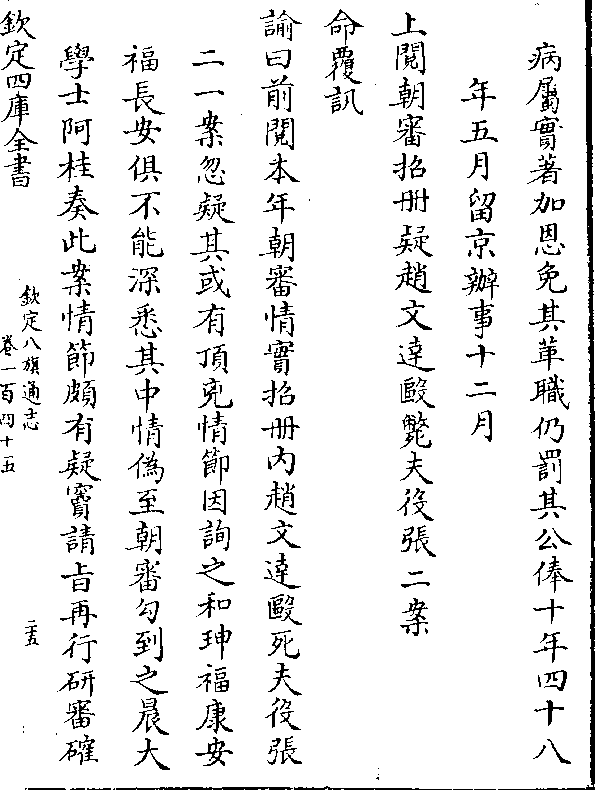 病屬實著加恩免其革職仍罰其公俸十年四十八
年五月留京辦事十二月
上閱朝審招册疑趙文逹毆斃夫役張二案
命覆訊
諭曰前閱本年朝審情實招册内趙文逹毆死夫役張
二一案忽疑其或有頂兇情節因詢之和珅福康安
福長安俱不能深悉其中情僞至朝審勾到之晨大
學士阿桂奏此案情節頗有疑竇請旨再行研審確
欽定四庫全書
欽定八旗通志
卷一百四十五
二五